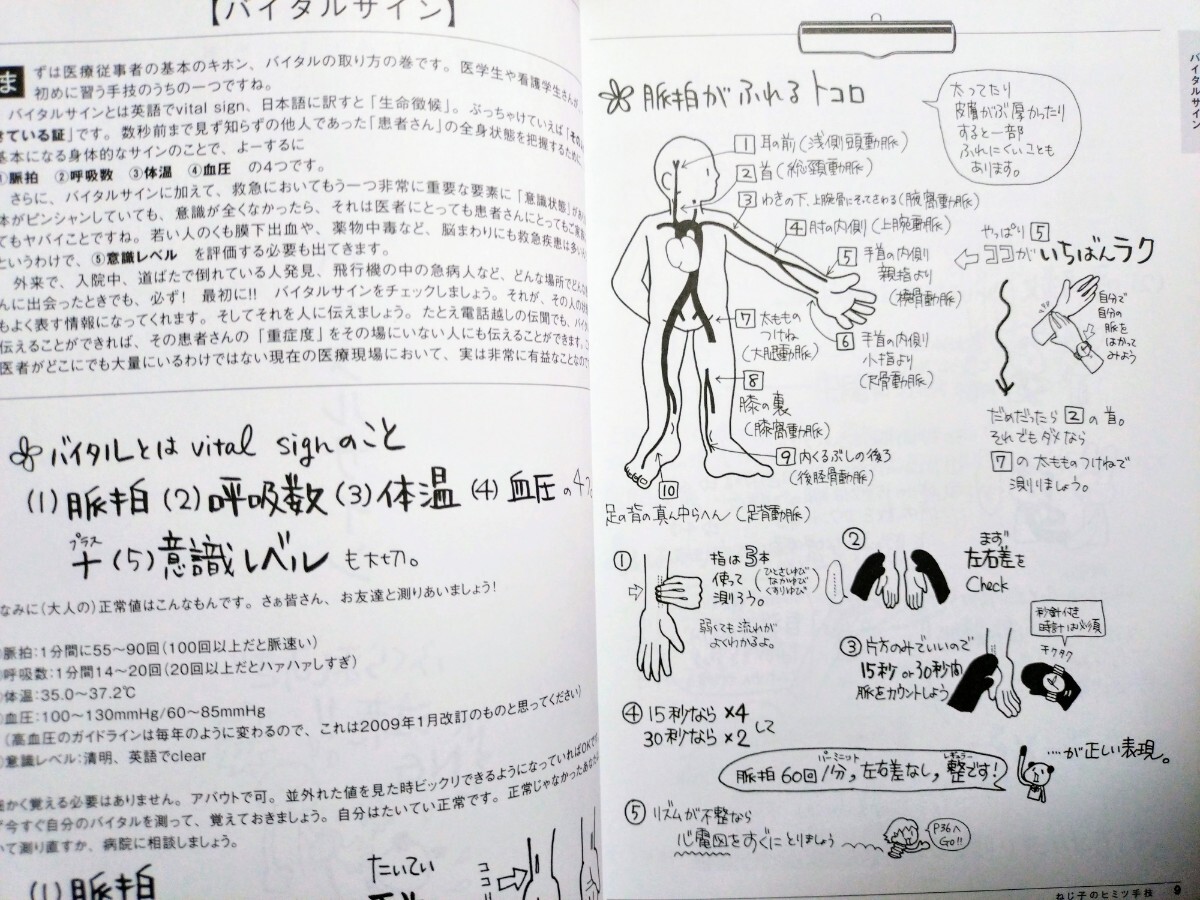 【バイタルサイン】
ま
ずは医療従事者の基本のキホン、バイタルの取り方の巻です。医学生や看護学生さんが
初めに習う手技のうちの一つですね。
バイタルサインとは英語でvital sign、日本語に訳すと「生命徴候」。ぶっちゃけていえば「その
きている証」です。数秒前まで見ず知らずの他人であった「患者さん」の全身状態を把握するために
基本になる身体的なサインのことで、よーするに
①脈拍 ②呼吸数 ③体温 ④血圧 の4つです。
さらに、バイタルサインに加えて、救急においてもう一つ非常に重要な要素に「意識状態」があ
体がピンシャンしていても、意識が全くなかったら、それは医者にとっても患者さんにとってもご
てもヤバイことですね。若い人のくも膜下出血や、薬物中毒など、脳まわりにも救急疾患は多い
というわけで、⑤意識レベル を評価する必要も出てきます。
外来で、入院中、道ばたで倒れている人発見、飛行機の中の急病人など、どんな場所でどんな
んに出会ったときでも、必ず! 最初に!! バイタルサインをチェックしましょう。それが、その人の
もよく表す情報になってくれます。そしてそれを人に伝えましょう。たとえ電話越しの伝聞でも、バイ
伝えることができれば、その患者さんの「重症度」をその場にいない人にも伝えることができます。
医者がどこにでも大量にいるわけではない現在の医療現場において、実は非常に有益なことなので
バイタルとは vital signのこと
(1)脈拍 (2)呼吸数 (3)体温 (4)血圧の4つ
プラス
+(5)意識レベル も大切。
なみに(大人の)正常値はこんなもんです。さぁ皆さん、お友達と測りあいましょう!
脈拍:1分間に55〜90回(100回以上だと脈速い)
呼吸数:1分間14〜20回(20回以上だとハァハァしすぎ)
体温:35.0〜37.2℃
血圧:100〜130mmHg/60〜85mmHg
(高血圧のガイドラインは毎年のように変わるので、これは2009年1月改訂のものと思ってください)
意識レベル:清明、英語でclear
かく覚える必要はありません。アバウトで可。並外れた値を見た時ビックリできるようになっていればOKで
今すぐ自分のバイタルを測って、覚えておきましょう。自分はたいてい正常です。正常じゃなかったあなた
て測り直すか、病院に相談しましょう。
(1)脈拍
たいてい
ココ
バイタルサイン
脈拍がふれるトコロ
太ってたり
皮膚がぶ厚かったり
すると一部
ふれにくいことも
あります。
1 耳の前(浅側頭動脈)
2 首(総頸動脈)
3 わきの下、上腕骨にそってさわる(腋窩動脈)
4 肘の内側(上腕動脈)
5 手首の内側
親指より
(橈骨動脈)
やっぱり5
ココがいちばんラク
6 手首の内側
小指より
(尺骨動脈)
7 太ももの
つけね
(大腿動脈)
8
膝の裏
(膝窩動脈)
9 内くるぶしの後ろ
(後脛骨動脈)
10
足の背の真ん中らへん(足背動脈)
自分で
自分の
脈を
はかって
みよう
だめだったら2の首。
それでもダメなら
7の太もものつけねで
測りましょう。
①
指は3本
使って
測ろう。
(ひとさしゆび
なかゆび
くすりゆび)
弱くても流れが
よくわかるよ。
②
まず
左右差を
Check
③片方のみでいいので
15秒or30秒間
脈をカウントしよう
秒針付き
時計は必須
チクタク
④15秒なら×4
30秒なら×2
して
パーミニット
レギュラー
脈拍60回/1分,左右差なし,整です!
....が正しい表現。
⑤リズムが不整なら
心電図をすぐにとりましょう
P36へ
Go!!
ねじ子のヒミツ手技 9